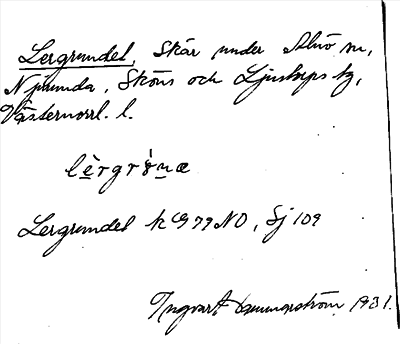 Lergrundet, Skär under Alnö sn,
Njurunda, Sköns och Ljustorps tg,
Västernorrl. l.
lèrgrúnæ
Lergrundet k G 79 NO, Sj 109
Ingvart Hammarström 1931.